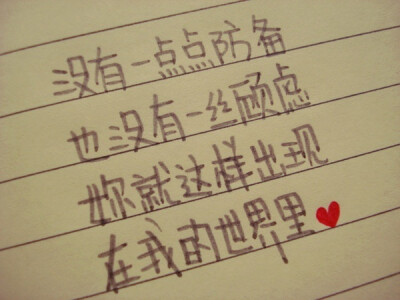 没有一点点防备
也没有一丝顾虑
妳就这样出现
在我的世界里